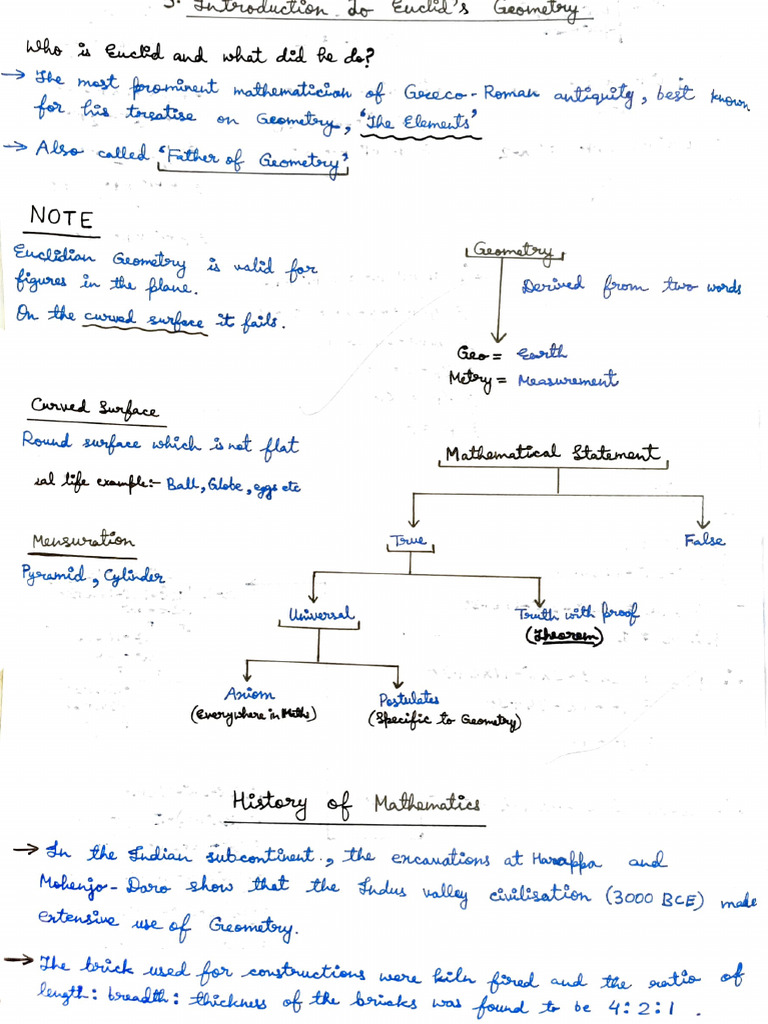 5. Introduction to Euclid's Geometry
Who is Euclid and what did he do?
→ The most prominent mathematician of Greco-Roman antiquity, best known
for his treatise on Geometry, 'The Elements'
→ Also called 'Father of Geometry'
NOTE
Euclidian Geometry is valid for
figures in the plane.
On the curved surface it fails.
Geometry
Derived from two words
Geo = Earth
Metry = Measurement
Curved Surface
Round surface which is not flat
eal life example:- Ball, Globe, eggs etc
Mensuration
Pyramid, Cylinder
Mathematical Statement
True
False
Universal
Truth with proof
(Theorem)
Axiom
(Everywhere in Maths)
Postulates
(Specific to Geometry)
History of Mathematics
→ In the Indian subcontinent, the excavations at Harappa and
Mohenjo-Daro show that the Indus valley civilisation (3000 BCE) make
extensive use of Geometry.
→ The brick used for constructions were kiln fired and the ratio of
length: breadth: thickness of the bricks was found to be 4:2:1.